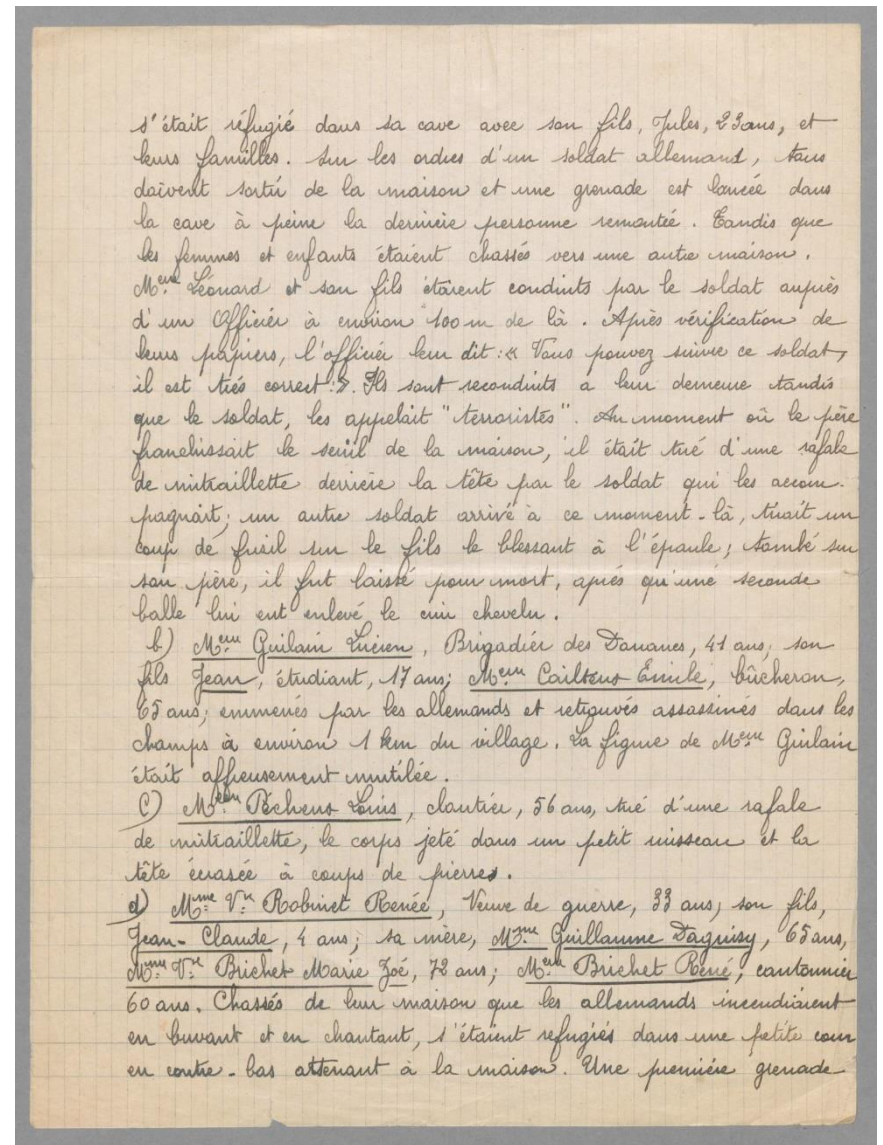 s'était réfugié dans sa cave avec son fils, Jules, 23 ans, et
leurs familles. Sur les ordres d'un soldat allemand, tous
doivent sortir de la maison et une grenade est lancée dans
la cave à peine la dernière personne remontée. Tandis que
les femmes et enfants étaient chassés vers une autre maison.
Léonard et son fils étaient conduits par le soldat auprès
d'un Officier à environ 100 m de là. Après vérification de
leurs papiers, l'officier leur dit : « Vous pouvez suivre ce soldat,
il est très correct ! ». Ils sont reconduits a leur demeure tandis
que le soldat, les appelait "terroristes". Au moment où le père
franchissait le seuil de la maison, il était tué d'une rafale
de mitraillette derrière la tête par le soldat qui les accom-
pagnait ; un autre soldat arrivé à ce moment-là, tirait un
coup de fusil sur le fils le blessant à l'épaule ; tombé sur
son père, il fut laissé pour mort, après qu'une seconde
balle lui eut enlevé le cuir chevelu.
b) Guilain Lucien, Brigadier des Douanes, 41 ans, son
fils Jean, étudiant, 17 ans ; Emile, bûcheron,
65 ans ; emmenés par les allemands et retrouvés assassinés dans les
champs à environ 1 km du village. La figure de Guilain
était affreusement mutilée.
C) Louis, cloutier, 56 ans, tué d'une rafale
de mitraillette, le corps jeté dans un petit ruisseau et la
tête écrasée à coups de pierres.
d) Mme Vve Robinet Renée, Veuve de guerre, 33 ans ; son fils,
Jean-Claude, 4 ans ; sa mère, Mme Guillaume Daguisy, 65 ans,
Mme Vve Brichet Marie Zoé, 72 ans ; Brichet René, cantonnier
60 ans. Chassés de leur maison que les allemands incendiaient
en buvant et en chantant, s'étaient refugiés dans une petite cour
en contre-bas attenant à la maison. Une première grenade